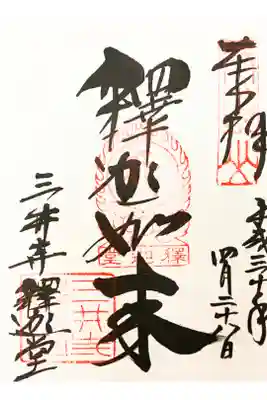 奉拝
平成三十年
四月二十八日
釋迦如来
釋迦堂
三井寺釋迦堂
三井寺